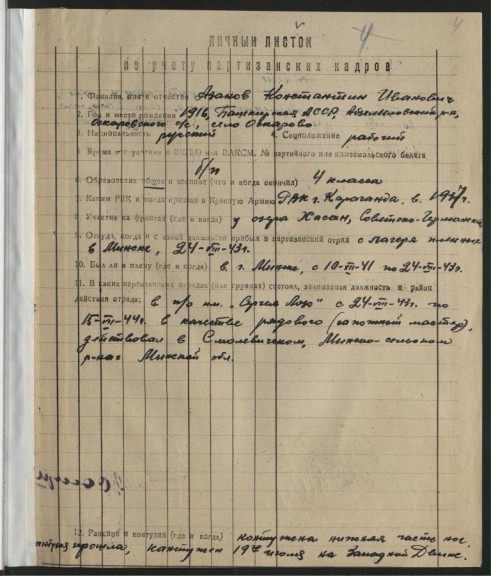 4
ЛИЧНЫЙ ЛИСТОК
по учету партизанских кадров
1. Фамилия, имя и отчество Азанов Константин Иванович
2. Год и место рождения 1916, Башкирская АССР,
с/с, село
3. Национальность русский 4. Соцположение рабочий
5. Время вступления в ВКП(б) или ВЛКСМ, № партийного или комсомольского билета
б/п
6. Образование общее и военное (что и когда окончил) 4 класса
7. Каким РВК и когда призван в Красную Армию РВК г. Караганда, в 1937г.
8. Участие на фронтах (где и когда) у озера Хасан, Советско-Германский
9. Откуда, когда и с какой должности прибыл в партизанский отряд с лагеря пленных
в Минске, 24-VII-43г.
10. Был ли в плену (где и когда) в г. Минске, с 10-VII-41 по 24-VII-43г.
11. В каких партизанских отрядах (или группах) состоял, занимаемая должность и район
действия отряда: в п/о им. "Сергея Лазо" с 24-VII-43г. по
15-VII-44г. в качестве рядового (сапожный мастер),
действовал в Смолевичском, Минско-сельском
р-нах Минской обл.
12. Ранения и контузии (где и когда) контужена нижняя часть ног.
прошла, контужен 19го июля на Западной Двине.